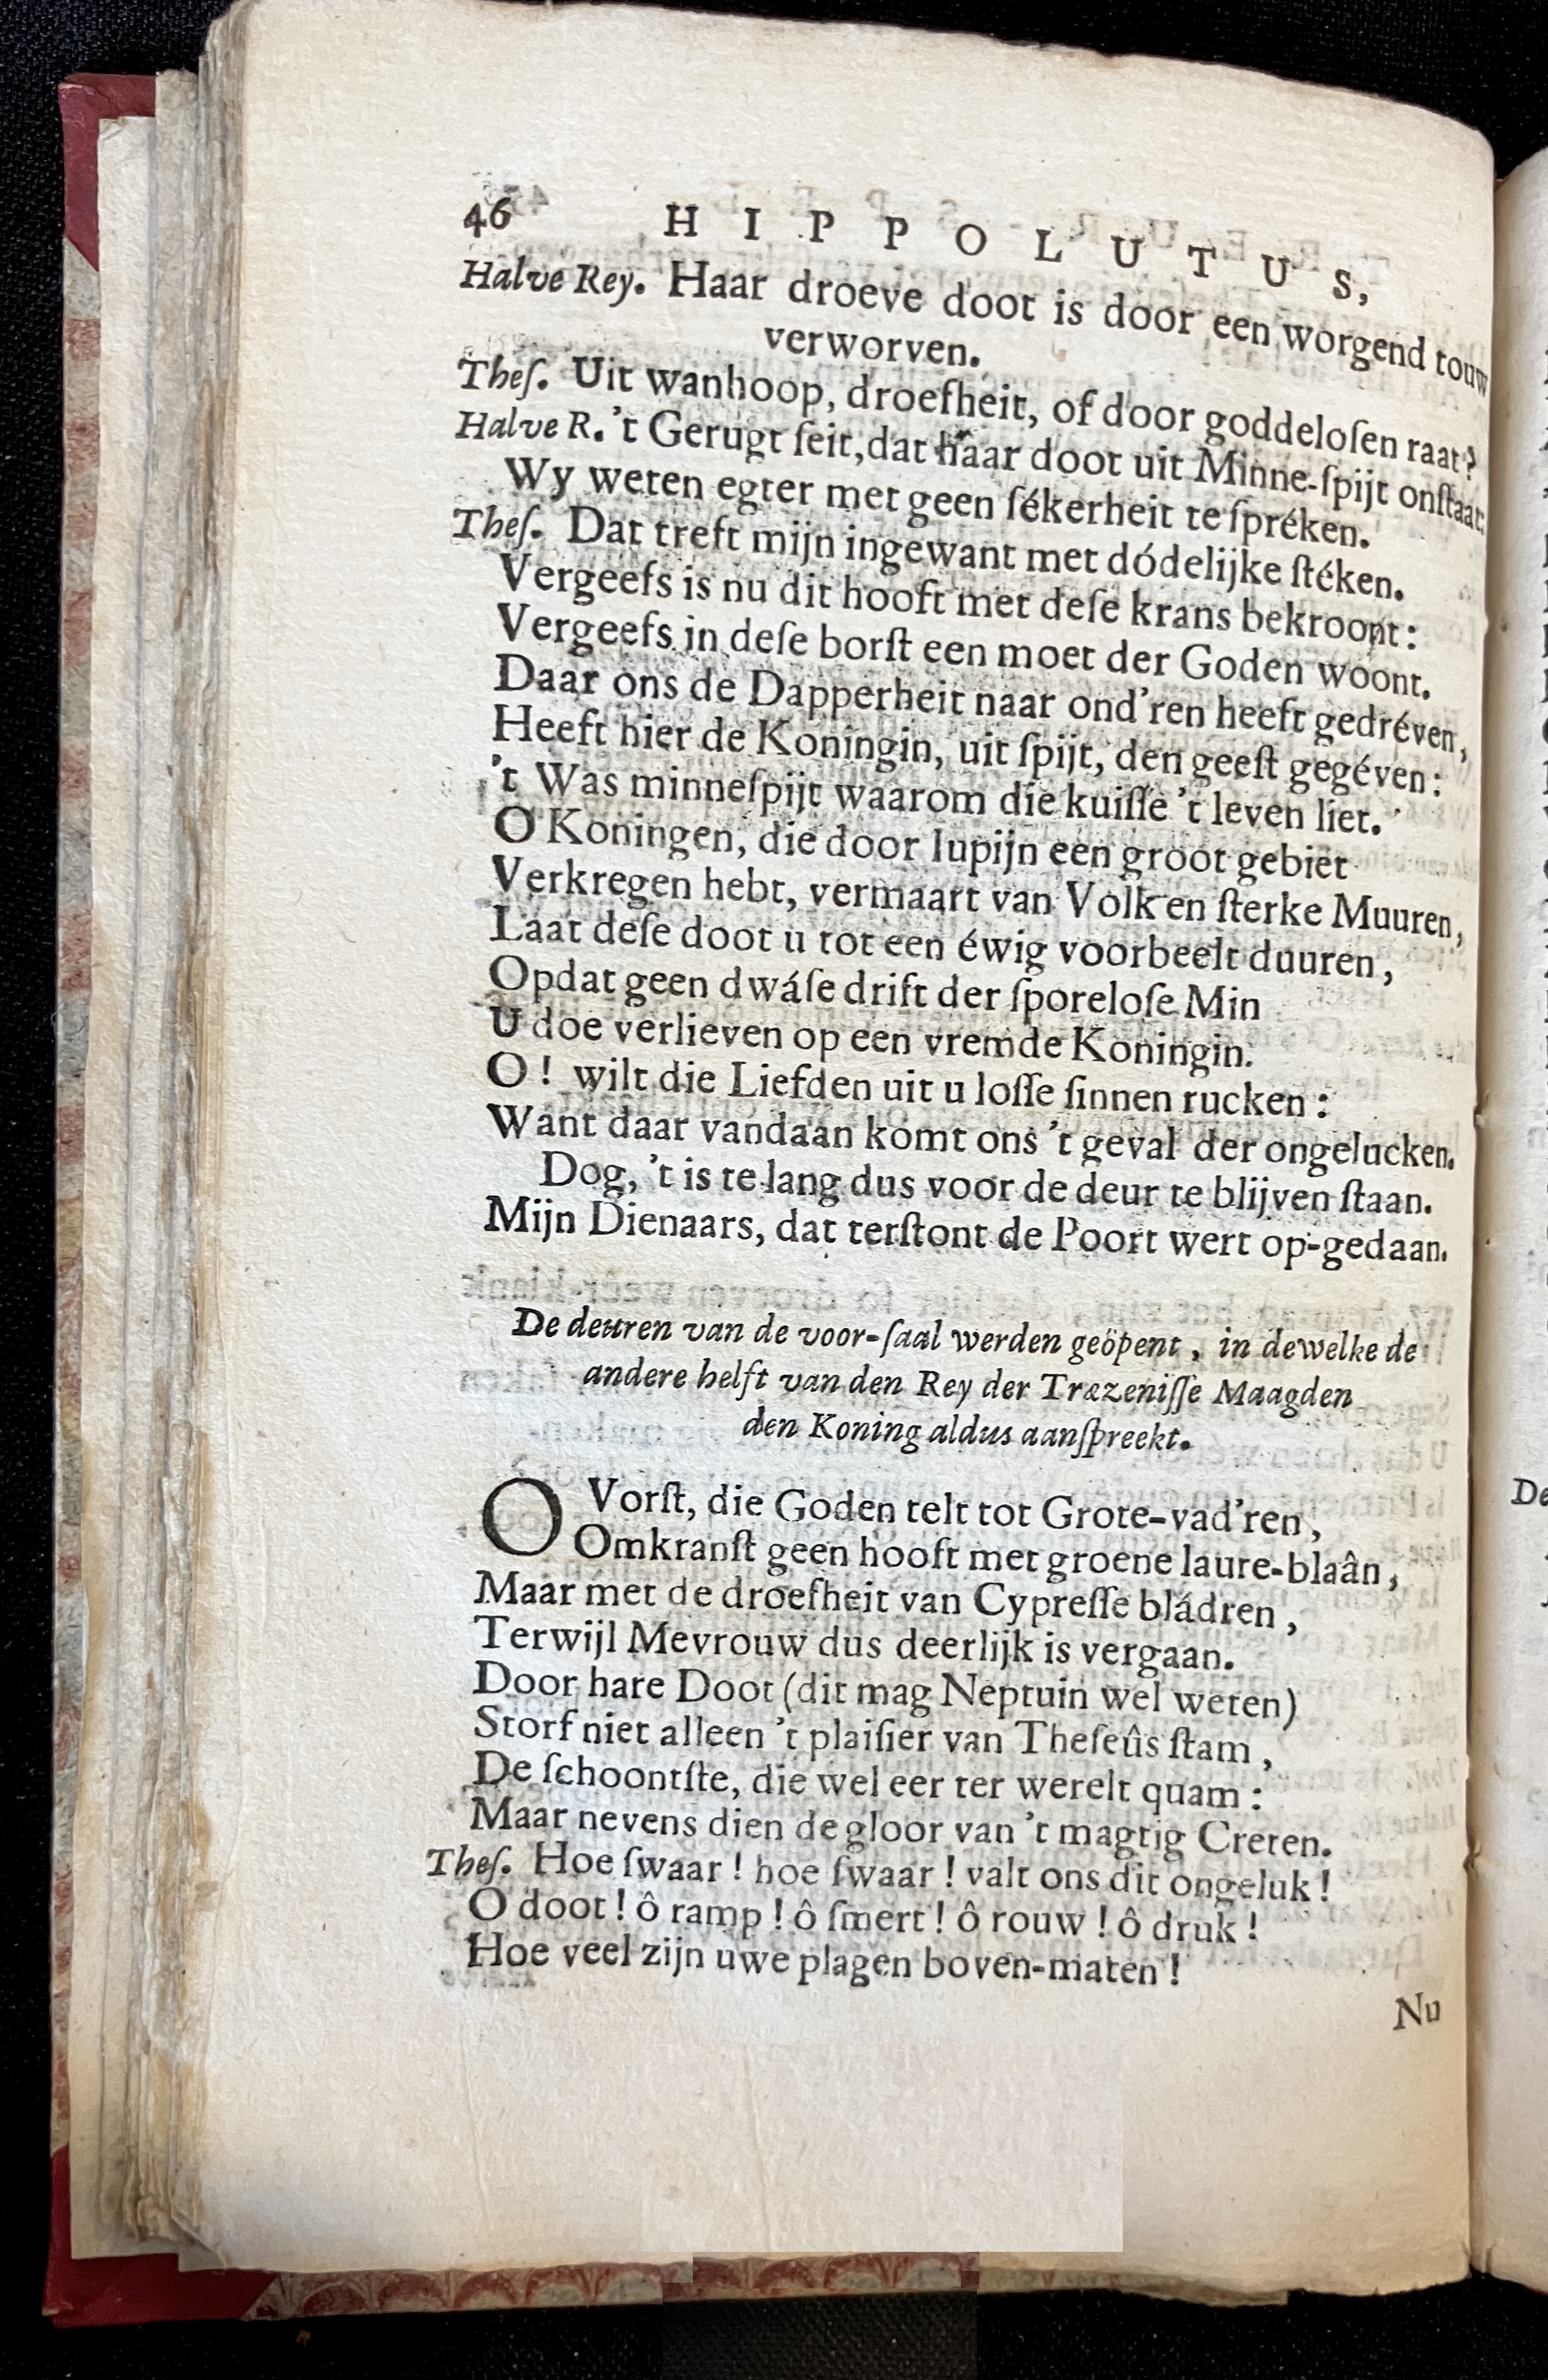 46 HIPPOLUTUS,
Halve Rey. Haar droeve doot is door een worgend touw
verworven.
Theſ. Uit wanhoop, droefheit, of door goddeloſen raat?
Halve R. 't Gerugt ſeit, dat haar doot uit Minne-ſpijt onſtaat:
Wy weten egter met geen ſékerheit te ſpréken.
Theſ. Dat treft mijn ingewant met dódelijke ſtéken.
Vergeefs is nu dit hooft met deſe krans bekroont:
Vergeefs in deſe borſt een moet der Goden woont.
Daar ons de Dapperheit naar ond'ren heeft gedréven,
Heeft hier de Koningin, uit ſpijt, den geeſt gegéven:
't Was minneſpijt waarom die kuiſſe 't leven liet.
O Koningen, die door lupijn een groot gebiet
Verkregen hebt, vermaart van Volk en ſterke Muuren,
Laat deſe doot u tot een éwig voorbeelt duuren,
Opdat geen dwáſe drift der ſporeloſe Min
U doe verlieven op een vremde Koningin.
O! wilt die Liefden uit u loſſe ſinnen rucken:
Want daar vandaan komt ons 't geval der ongelucken.
Dog, 't is te lang dus voor de deur te blijven ſtaan.
Mijn Dienaars, dat terſtont de Poort wert op-gedaan.
De deuren van de voor-ſaal werden geöpent, in dewelke de
andere helft van den Rey der Træzeniſſe Maagden
den Koning aldus aanſpreekt.
O Vorſt, die Goden telt tot Grote-vad'ren,
Omkranſt geen hooft met groene laure-blaân,
Maar met de droefheit van Cypreſſe bládren,
Terwijl Mevrouw dus deerlijk is vergaan.
Door hare Doot (dit mag Neptuin wel weten)
Storf niet alleen 't plaiſier van Theſeûs ſtam,
De ſchoontſte, die wel eer ter werelt quam:
Maar nevens dien de gloor van 't magtig Creten.
Theſ. Hoe ſwaar! hoe ſwaar! valt ons dit ongeluk!
O doot! ô ramp! ô ſmert! ô rouw! ô druk!
Hoe veel zijn uwe plagen boven-maten!
Nu
De